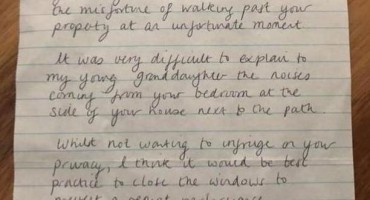 the misfortune of walking past your
property at an unfortunate moment.
It was very difficult to explain to
my young granddaughter the noises
coming from your bedroom at the
side of your house next to the path.
Whilst not wanting to infringe on your
privacy, I think it would be best
practice to close the windows to
prevent a repeat